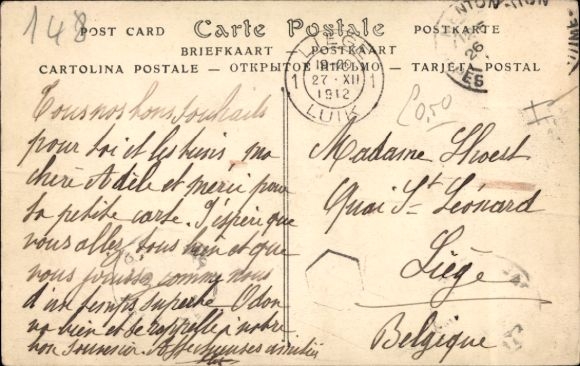 148
POST CARD Carte Postale POSTKARTE
BRIEFKAART — POSTKAART
CARTOLINA POSTALE — ОТКРЫТОЕ ПИСЬМО — TARJETA POSTAL
1 27-XII 1
1912
LUIK
MENTON
26
0,50
Tous nos bons souhaits
pour toi et les tiens, ma
chère Adèle et merci pour
ta petite carte. J'espère que
vous allez tous bien et que
vous jouissez comme nous
d'un temps superbe. Odon
va bien et se rappelle à votre
bon souvenir. Affectueuses amitiés
Madame Lhoest
Quai St Léonard
Liège
Belgique